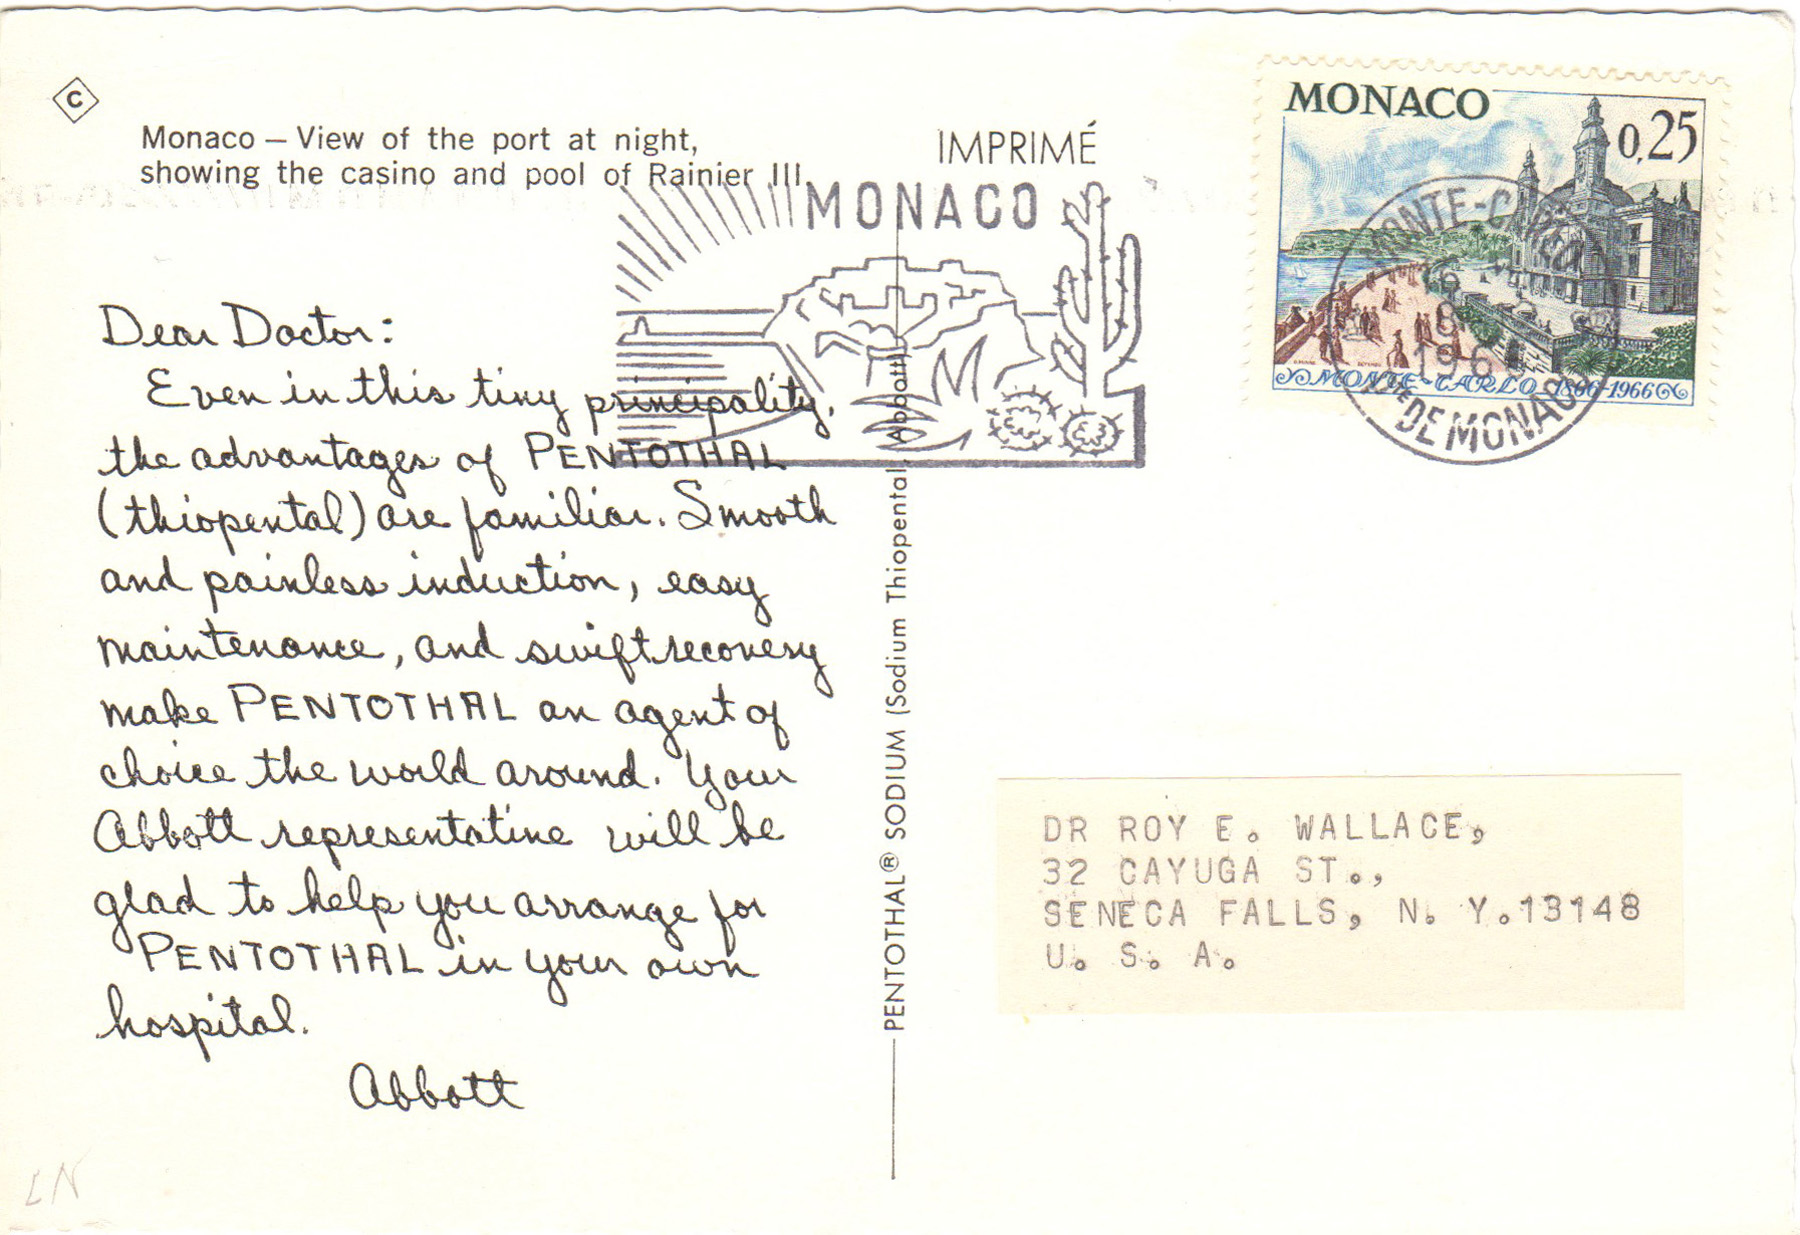 C
Monaco – View of the port at night,
showing the casino and pool of Rainier III.
IMPRIMÉ
MONACO
MONACO
0,25
MONTE-CARLO 1866-1966
MONTE-CARLO
DE MONACO
Dear Doctor:
Even in this tiny principality,
the advantages of PENTOTHAL
(thiopental) are familiar. Smooth
and painless induction, easy
maintenance, and swift recovery
make PENTOTHAL an agent of
choice the world around. Your
Abbott representative will be
glad to help you arrange for
PENTOTHAL in your own
hospital.
Abbott
PENTOTHAL® SODIUM (Sodium Thiopental, Abbott)
DR ROY E. WALLACE,
32 CAYUGA ST.,
SENECA FALLS, N. Y.13148
U. S. A.
LN